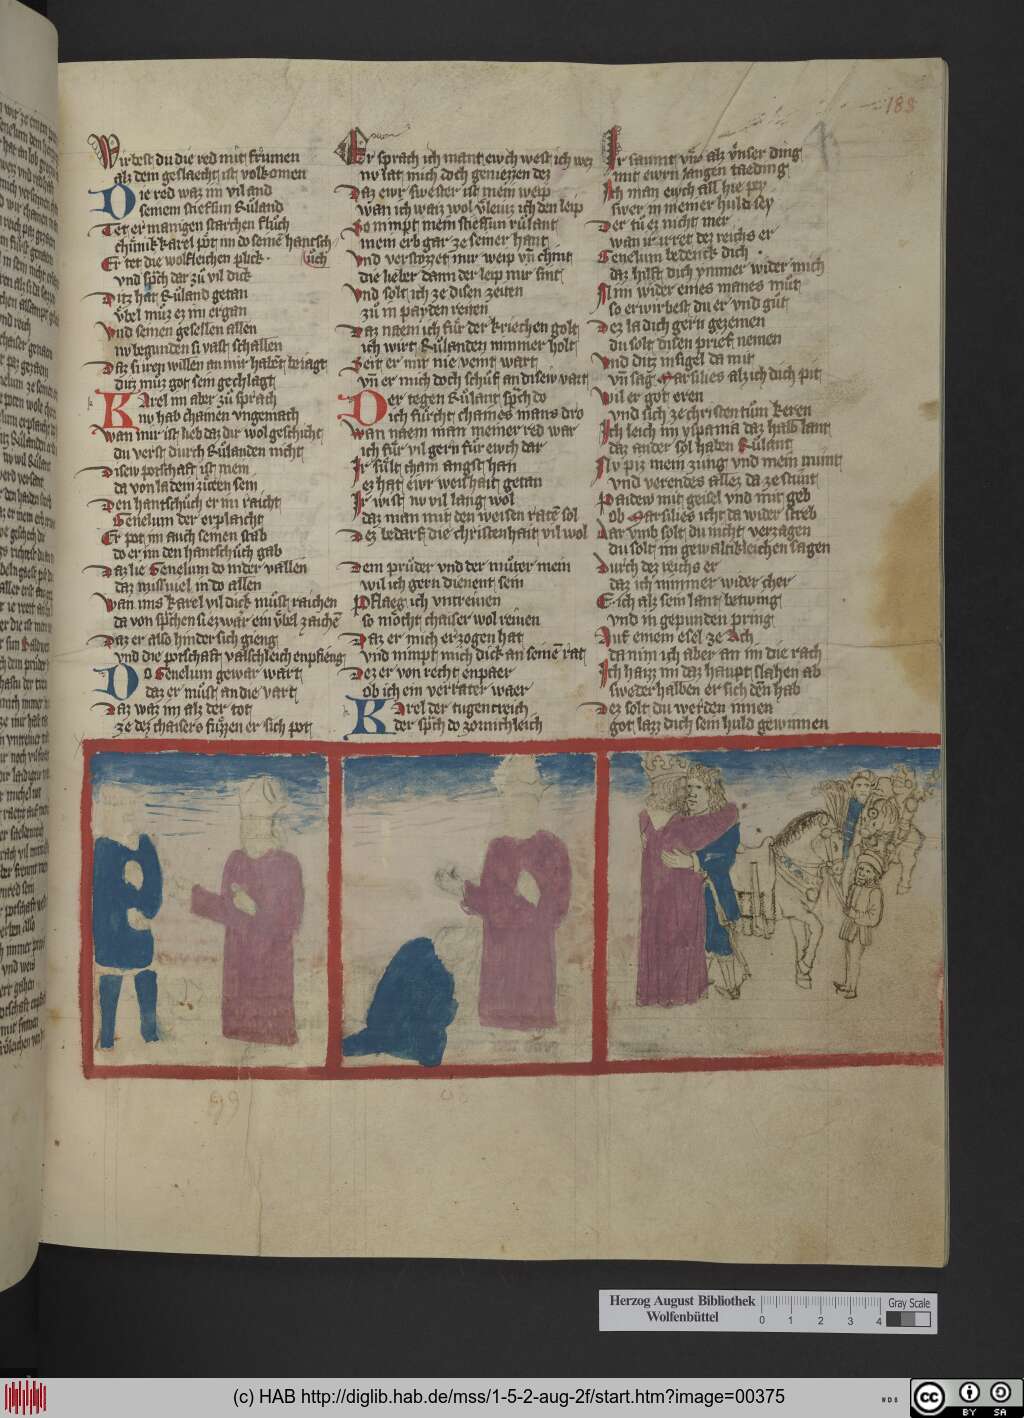 183
Wirbest du die red mit frumen
alz dem geslaecht ist volkomen
Die red waz im vil and
seinem stiefsun Rulant
Tet er manigen starchen fluch
chunik karel pot im do seine hantsch
Er tet die wolfleichen plick uch
vnd spch dar zu vil dick
Ditz hat Ruland getan
vbel muz ez im ergan
Vnd seinen gesellen allen
nv begunden si vast schallen
Daz si iren willen an mir habent beiagt
ditz muz got sein gechlagt
Karel im aber zu sprach
nv hab chainen vngemach
Wan mir ist lieb daz dir wol geschicht
du verst durch Rulanden nicht
Disew potschaft ist mein
da von la dein zurnen sein
Den hantschuch er im raicht
Genelun der erplaicht
Er pot im auch seinen stab
do er im den hantschuch gab
Daz lie Genelun do nider vallen
daz misviel in do allen
Wan ims karel vil dick must raichen
da von spchen si ez war ein vbel zaichen
Daz er also hinder sich gieng
vnd die potschaft valschleich enpfieng
Do Genelun gewar wart
daz er must an die vart
Daz waz im alz der tot
ze dez chaisers fuzzen er sich pot
Er sprach ich mant ewch west ich wez
nv lat mich doch geniezzen dez
Daz ewr swester ist mein weip
wan ich waiz wol vleuz ich den leip
So nimpt mein stiefsun rulant
mein erb gar ze seiner hant
Vnd verstozzet mir weip vn chint
die lieber dann der leip mir sint
Vnd solt ich ze disen zeiten
zu in payden reiten
Daz naem ich fur der kriechen golt
ich wirt Rulanden nimmer holt
Seit er mir nie veint wart
vn er mich doch schuf an disew vart
Der tegen Rulant spch do
ich furcht chaines mans dro
Wan naem man meiner red war
ich fur vil gern fur ewch dar
Ir sult chain angst han
ez hat ewr weishait getan
Ir wist nv vil lang wol
daz man mit den weisen raten sol
Dez bedarf die christenhait vil wol
Dem pruder vnd der muter mein
wil ich gern dienent sein
Pflaeg ich vntreiuen
so mocht chaiser wol reiuen
Daz er mich erzogen hat
vnd nimpt mich dick an seine rat
Dez er von recht enpaer
ob ich ein verrater waer
Karel der tugentreich
der spch do zornichleich
Ir saumt vns alz vnser ding
mit ewrn langen taeding
Ich man ewch all hie pey
swer in meiner huld sey
Der tu ez nicht mer
wan ir irret dez reichs er
Genelun bedenck dich
daz hilft dich ymmer wider mich
Nim wider eines manes mut
so erwirbest du er vnd gut
Dez la dich gern gezemen
du solt disen prief nemen
Vnd ditz insigel da mit
vn sag Marsilies alz ich dich pit
Wil er got eren
vnd sich ze christentum keren
Ich leich im yspania daz halb lant
daz ander sol haben Rulant
Nv prz mein zung vnd mein munt
vnd verendes allez da ze stunt
Paidew mit geisel vnd mit geb
ob Marsilies icht da wider streb
Dar vmb solt du nicht verzagen
du solt im gewaltikleichen sagen
Durch dez reichs er
daz ich nimmer wider cher
E ich alz sein lant betwing
vnd in gepunden pring
Auf einem esel ze Ach
da nim ich aber an im die rach
Ich haizz im daz haupt slahen ab
swederhalben er sich den hab
Dez solt du werden innen
got lazz dich sein huld gewinnen
Herzog August Bibliothek
Wolfenbüttel
0 1 2 3 4
Gray Scale
(c) HAB http://diglib.hab.de/mss/1-5-2-aug-2f/start.htm?image=00375
WDB
cc BY SA